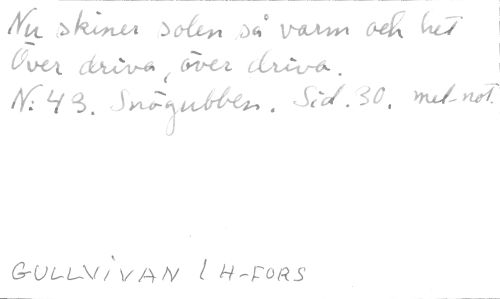 Nu skiner solen så varm och het
Över driva, över driva.
N: 43. Snögubben. Sid. 30. mel-not.
GULLVIVAN I H-FORS